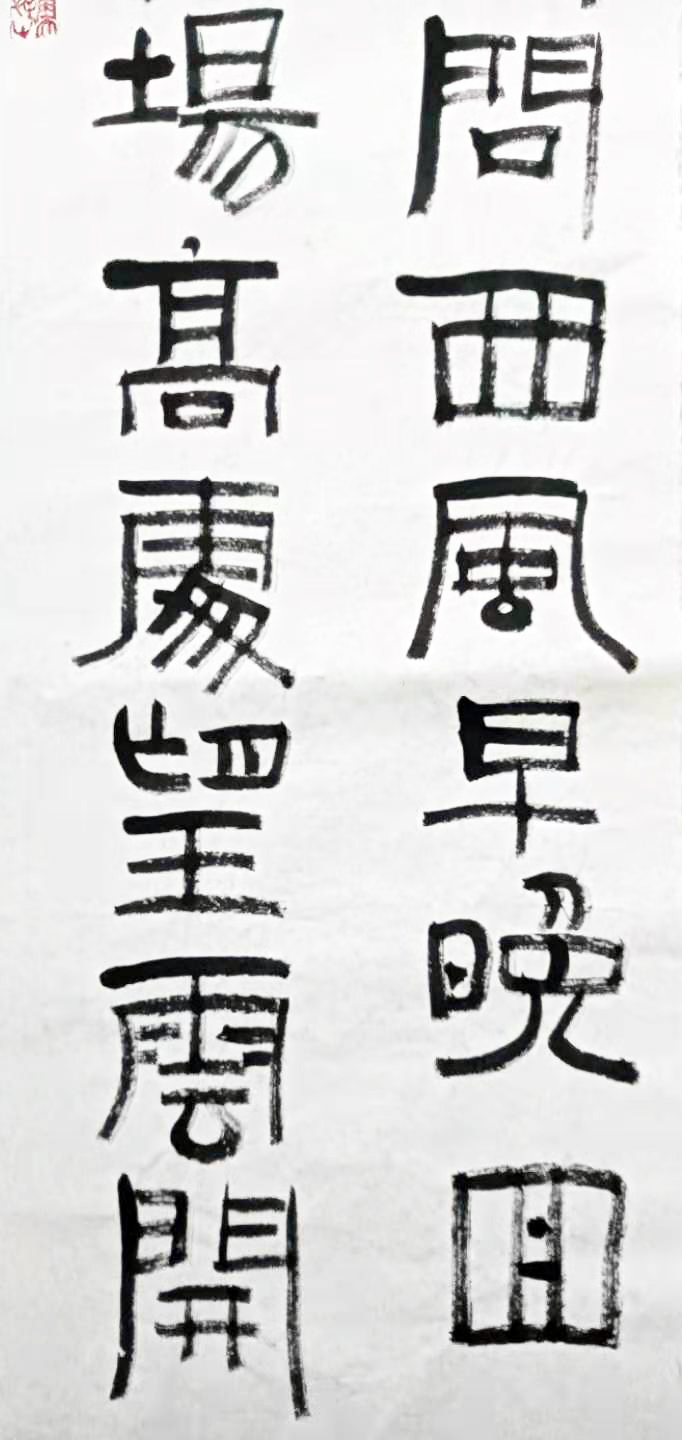 問西風早晚回
場高處望雲開